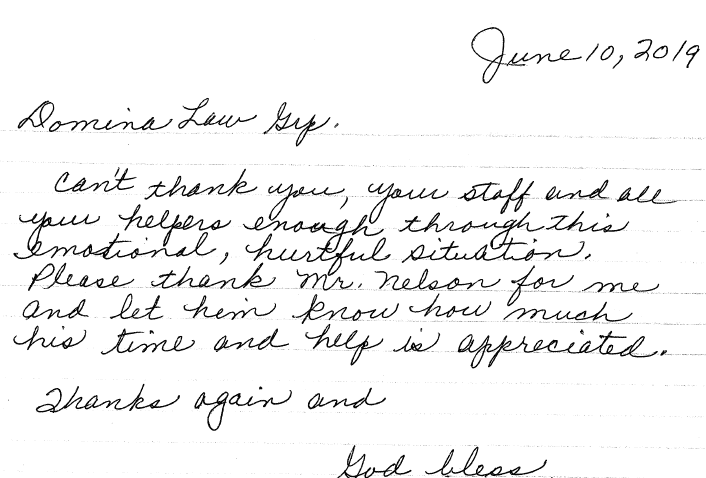 June 10, 2019
Domina Law Grp.
Can't thank you, your staff and all
your helpers enough through this
emotional, hurtful situation.
Please thank Mr. Nelson for me
and let him know how much
his time and help is appreciated.
Thanks again and
God bless